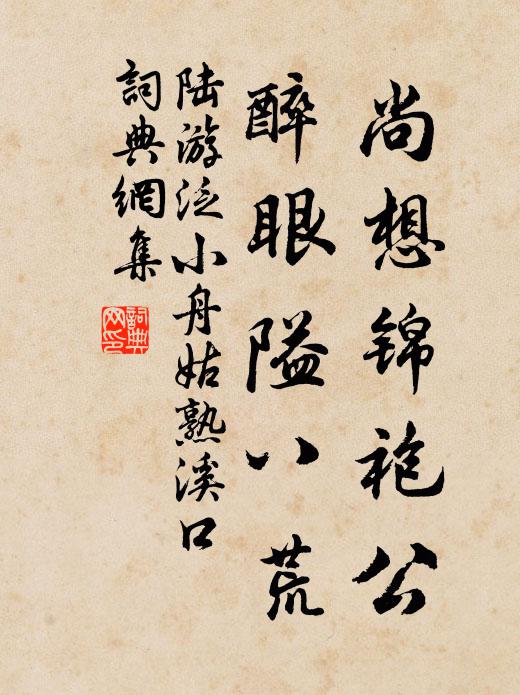 尚想锦袍公
醉眼隘八荒
陆游泛小舟姑熟溪口
詞典網集
詞典网印